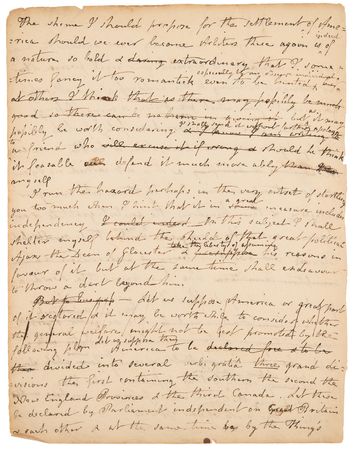 The scheme I should propose for the settlement of Ame-
rica should we ever become Arbiters there again is of
if indeed
a nature so bold & daring extraordinary that I some
times fancy it too romantick even to be hinted
especially by any
at others I think that as there may possibly be much
good so there can be no but it may
possibly be worth considering
to a friend who will excuse it if wrong & should he think
it feasable will defend it much more ably than
myself
I run the hazard perhaps in the very outset of startling
you too much when I hint that it in a great measure includes
independency. I could indeed In this subject I shall
shelter myself behind the shield of that great political
Ajax the Dean of Glocester &
take the liberty of assuming his reasons in
favour of it but at the same time shall endeavour
to throw a dart beyond him.
But to Let us suppose America or great part
of it restored & it may be worth while to consider whether
the general welfare might not be best promoted by the
following plan
Let us suppose then
America to be declared free & to be
then divided into several three grand di-
visions the first containing the Southern the second the
New England Provinces & the third Canada. Let these
be declared by Parliament independent on Great Britain
& each other & at the same time by the King's